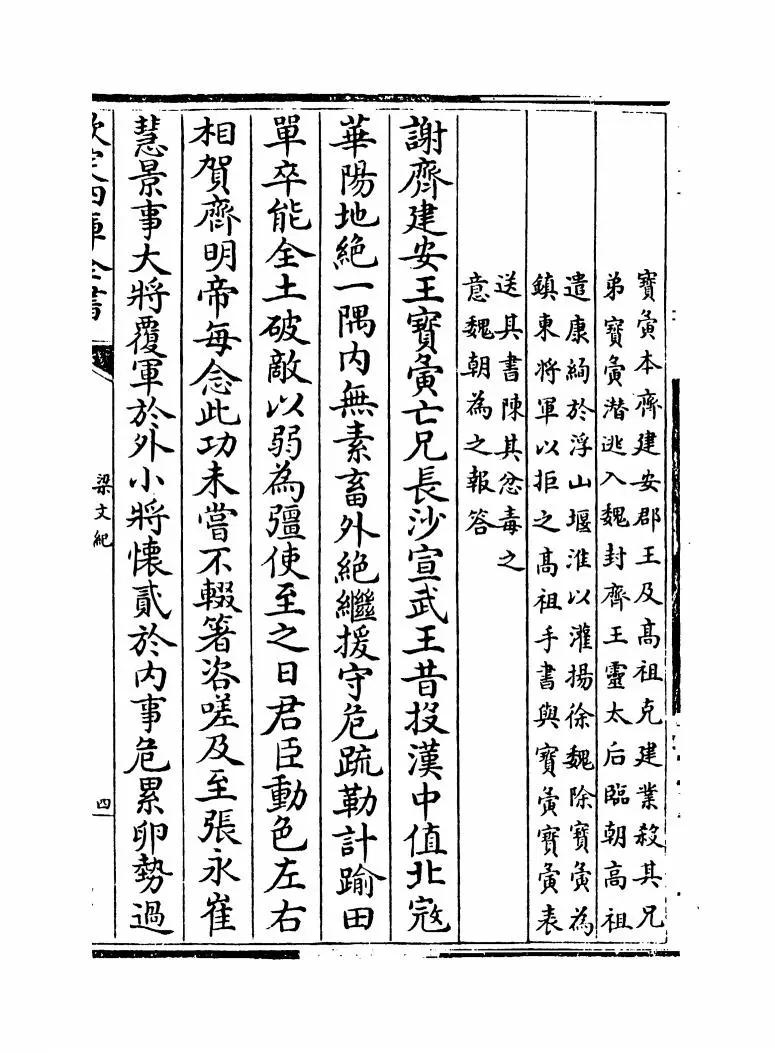 寶夤本齊建安郡王及髙祖克建業殺其兄
弟寶夤潛逃入魏封齊王靈太后臨朝高祖
遣康絢於浮山堰淮以灌揚徐魏除寶夤為
鎮東將軍以拒之髙祖手書與寶夤寶夤表
送其書陳其忿毒之
意魏朝為之報答
謝齊建安王寶夤亡兄長沙宣武王昔投漢中值北宼
華陽地絶一隅内無素畜外絶繼援守危疏勒計踰田
單卒能全土破敵以弱為彊使至之日君臣動色左右
相賀齊明帝每念此功未嘗不輟箸咨嗟及至張永崔
慧景事大將覆軍於外小將懐貳於内事危累卵勢過
欽定四庫全書
梁文紀
四